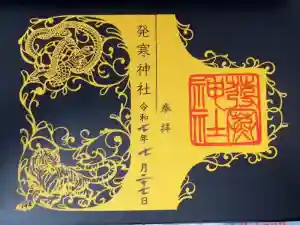 奉拝
発寒神社
令和七年七月二十七日
発寒神社